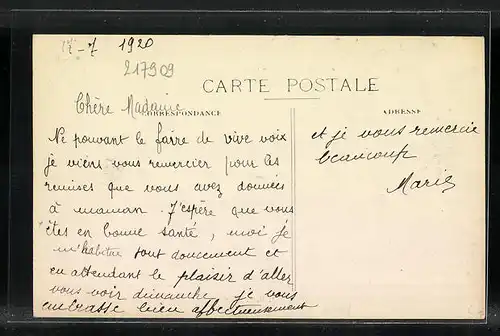 17-7 1920
217909
CARTE POSTALE
Chère Madame
CORRESPONDANCE
ADRESSE
Ne pouvant le faire de vive voix
je viens vous remercier pour les
remises que vous avez données
à maman. J'espère que vous
êtes en bonne santé, moi je
m'habitue tout doucement et
en attendant le plaisir d'aller
vous voir dimanche je vous
embrasse bien affectueusement
et je vous remercie
beaucoup
Marie